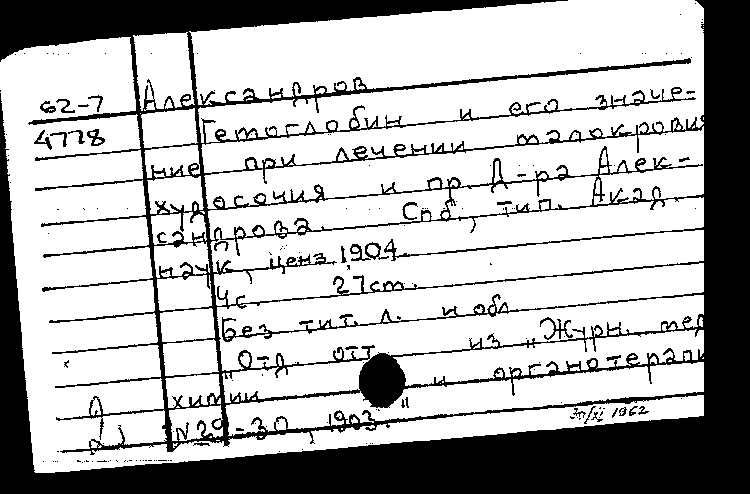 62-7 Александров
4778 Гемоглобин и его значе-
ние при лечении малокровия
худосочия и пр. Д-ра Алек-
сандрова. Спб., тип. Акад.
наук, ценз. 1904.
4с. 27см.
Без тит. л. и обл.
„Отд. отт. из „Журн. мед.
химии и органотерапи
№29-30, 1903."
30/XI 1962